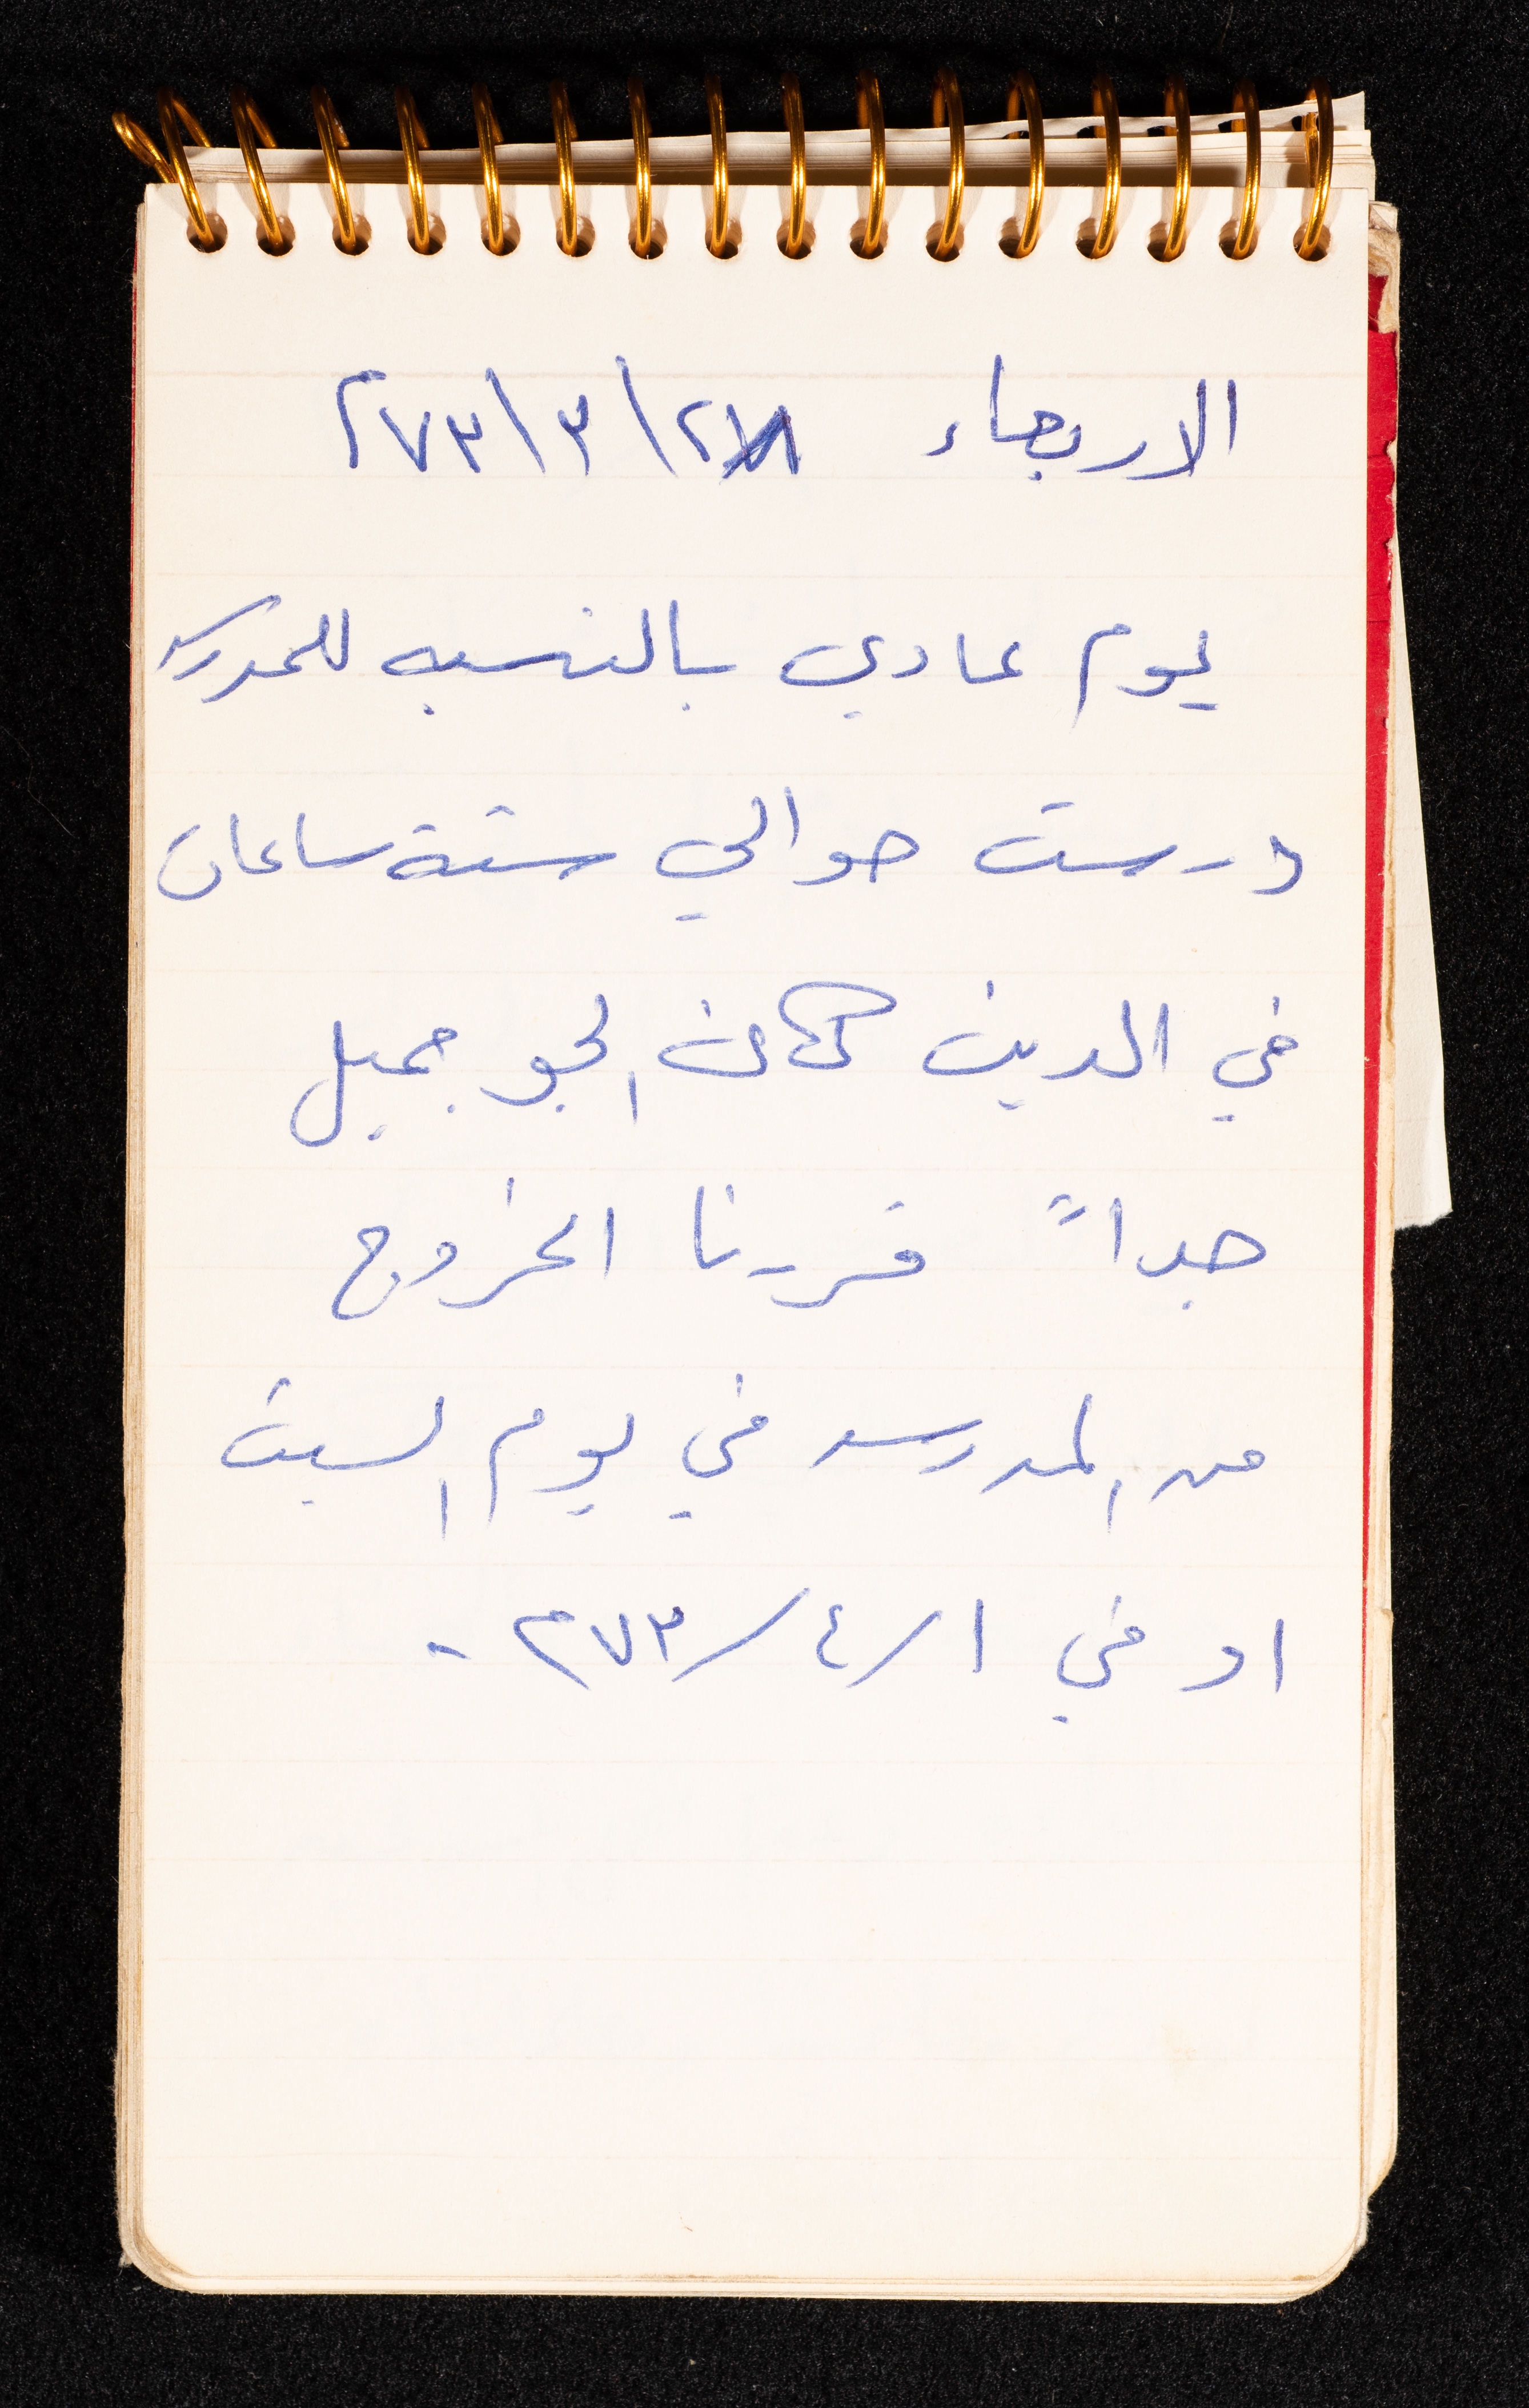 الاربعاء ٢٨/٣/٧٣م
يوم عادي بالنسبه للمدرسه
درست حوالي ستة ساعات
في الدين كان الجو جميل
جداً قررنا الخروج
من المدرسه في يوم السبت
او في ١/٤/٧٣م -